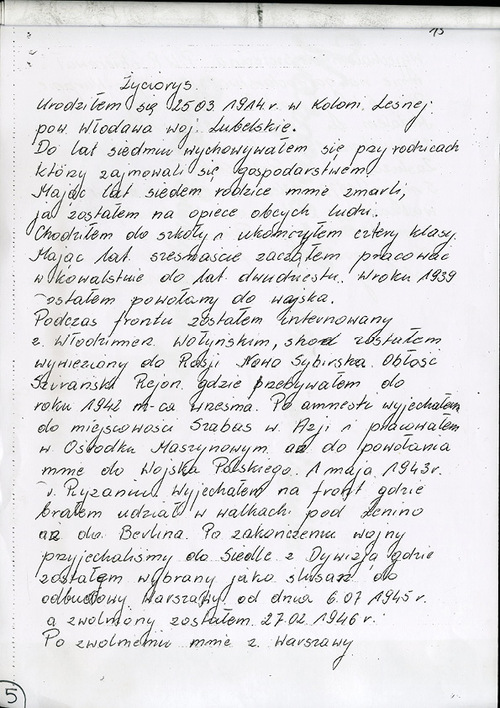 13
Życiorys.
Urodziłem się 25.03 1914r. w Koloni Leśnej
pow. Włodawa woj. Lubelskie.
Do lat siedmiu wychowywałem się przy rodzicach
którzy zajmowali się gospodarstwem
Mając lat siedem rodzice mnie zmarli,
ja zostałem na opiece obcych ludzi.
Chodziłem do szkoły i ukończyłem cztery klasy.
Mając lat szesnaście zacząłem pracować
w kowalstwie do lat dwudziestu. W roku 1939
zostałem powołany do wojska.
Podczas frontu zostałem internowany
z. Włodzimierz Wołyńskim, skąd zostałem
wywieziony do Rosji Nowo Sybirska. Obłość
Rejon. gdzie przebywałem do
roku 1942 m-ca wrzesnia. Po amnesti wyjechałem
do miejscowości Szabas w. Azji i pracowałem
w Ośrodku Maszynowym aż do powołania
mnie do Wojska Polskiego. 1 maja 1943r.
w. Ryzaniu wyjechałem na front gdzie
brałem udział w walkach pod Lenino
aż do Berlina. Po zakończeniu wojny
przyjechaliśmy do Siedlc z Dywizją gdzie
zostałem wybrany jako ślusarz do
odbudowy Warszawy od dnia 6.07 1945r.
a zwolniony zostałem 27.02 1946r.
Po zwolnieniu mnie z. Warszawy
5